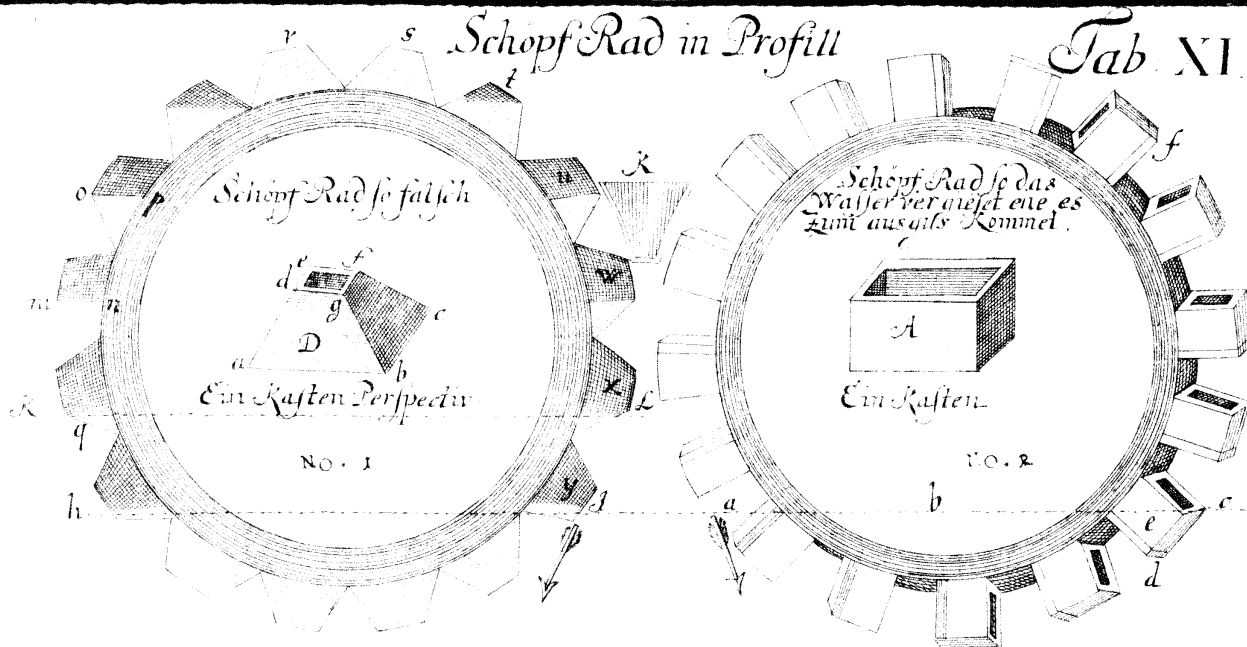 Schöpf Rad in Profill
Tab. XI.
r
s
t
o
p
u
K
m
n
w
Schöpf Rad so falsch
e
f
d
g
c
D
a
b
Ein Kasten Perspectiv
x
K
L
q
NO. 1
h
y
I
f
Schöpf Rad so das
Wasser vergieset ehe es
Zum ausgus Kommet.
A
Ein Kasten
NO. 2
a
b
c
e
d